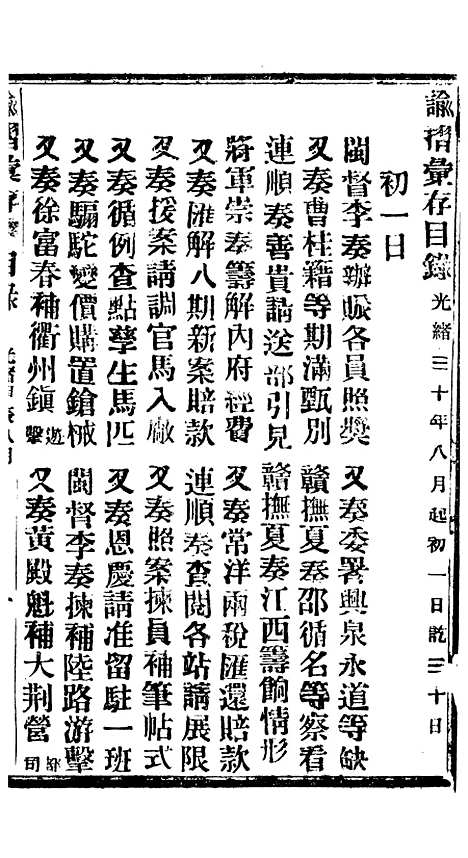 諭摺彙存目錄 光緒三十年八月起初一日訖三十日
初一日
閩督李奏辦賑各員照獎
又奏委署興泉永道等缺
又奏曹桂籍等期滿甄別
贛撫夏奏邵循名等察看
連順奏善貴請送部引見
贛撫夏奏江西籌餉情形
將軍崇奏籌解內府經費
又奏常洋兩稅匯還賠款
又奏匯解八期新案賠款
連順奏查閱各站請展限
又奏援案請調官馬入廠
又奏照案揀員補筆帖式
又奏循例查點孳生馬匹
又奏恩慶請准留駐一班
又奏騸駝變價購置鎗械
閩督李奏揀補陸路游擊
又奏徐富春補衢州鎮遊擊
又奏黃殿魁補大荆營都司
諭摺彙存 目錄